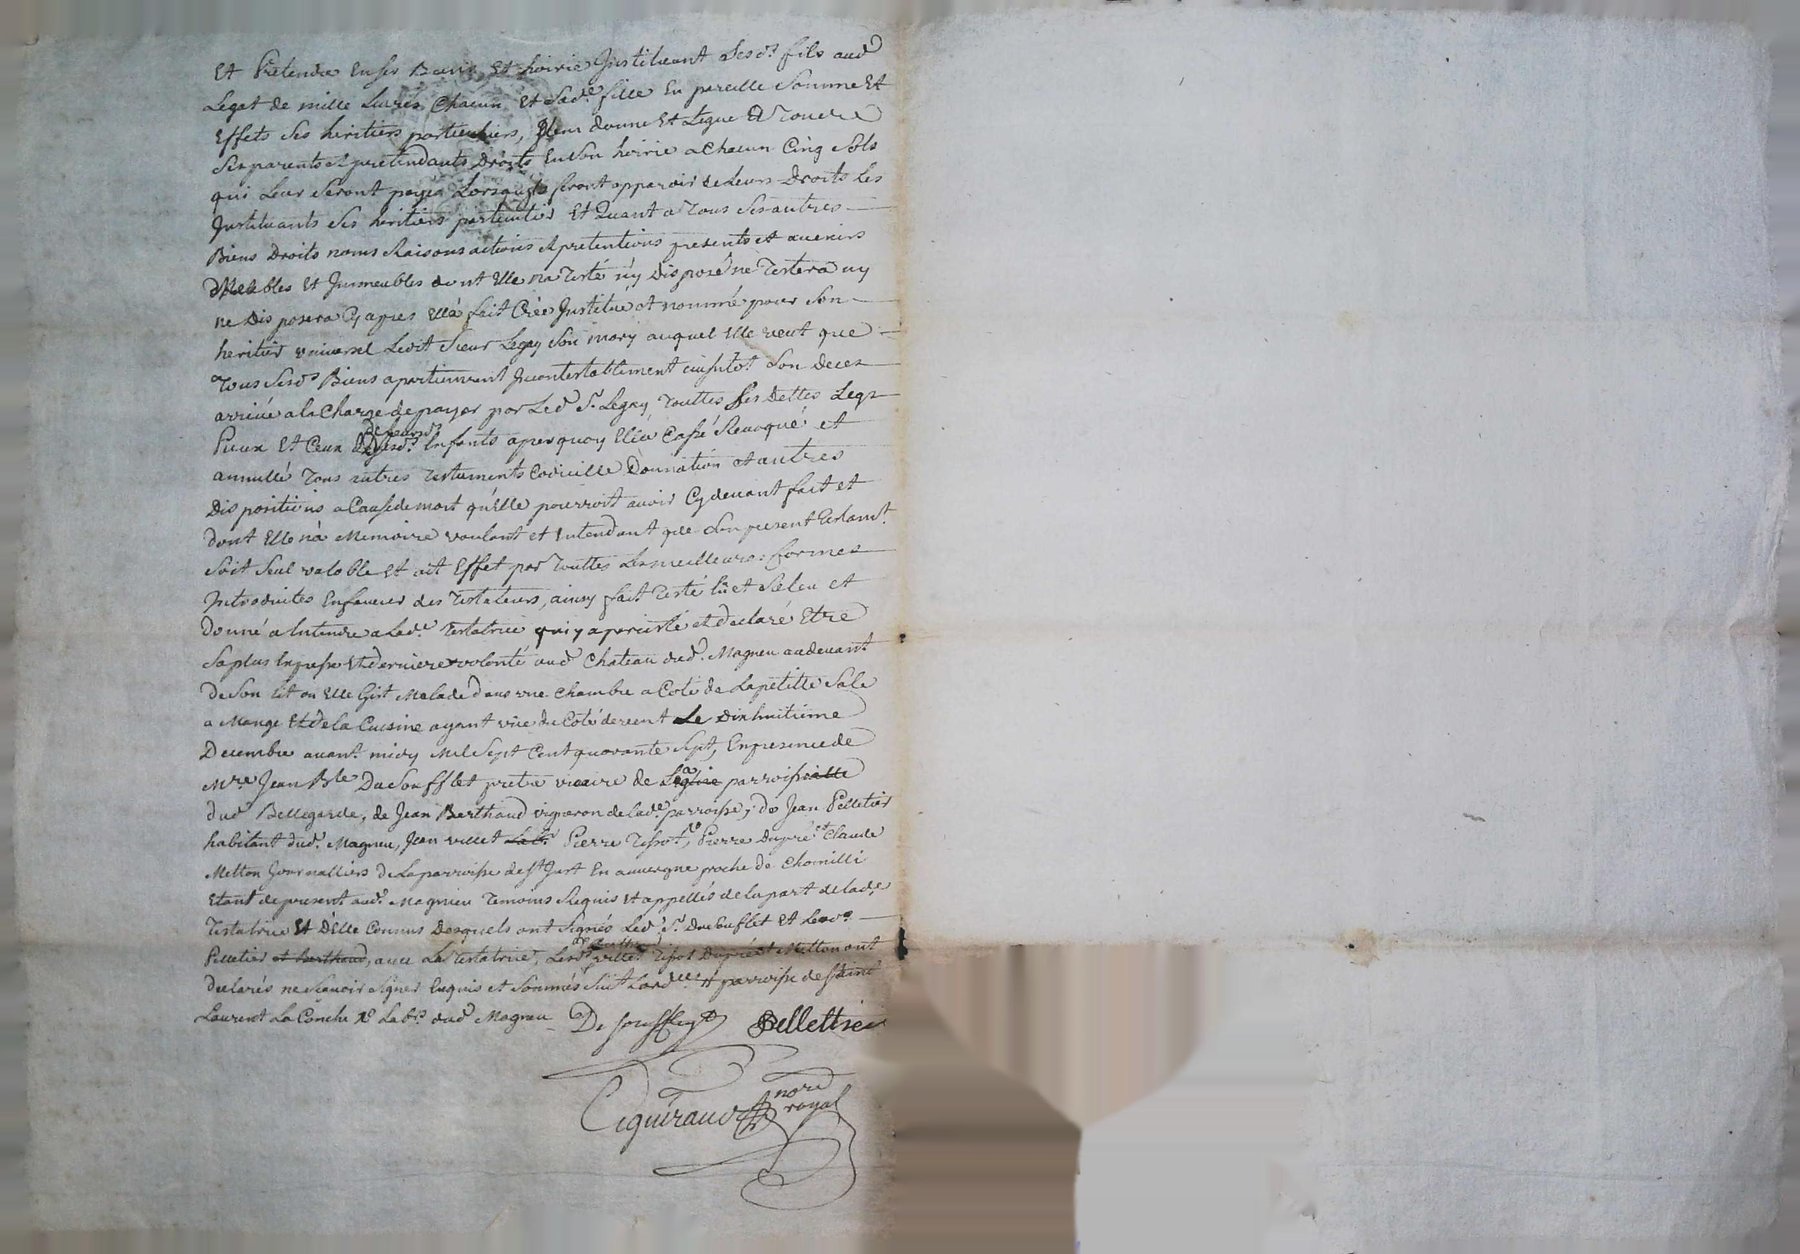 Et Pretendre En ses Biens Et hoirie Instituant sesd.ts fils aud
Legat de mille Livres Chacun Et sad.e fille En pareille Somme Et
Effets ses heritiers particuliers, Donne Et Legue A Tous
Ses parents et pretendants Droits En son hoirie a Chacun Cinq Sols
qui Leur Seront payés Lorsqu'ils feront apparoir de Leurs Droits Les
Instituants Ses heritiers particulier Et Quant a Tous Ses autres
Biens Droits noms Raisons actions et pretentions presents et avenirs
Meubles Et Immeubles dont Elle n'a Testé n'y Disposé ne Testera ny
ne Disposera Cy apres Ella fait Crée Institué et nommé pour Son
heritier universel Ledit Sieur Legay Son mary auquel Elle veut que
Tous Sesd.ts Biens apartiennent Incontestablement aussitot Son Decez
arrivé a la Charge de payer par Led. Sr. Legay Touttes ses Dettes Legs
Pieux Et Ceux Enfants apres quoy Ella Cassé Revoqué et
annullé Tous autres Testuments Codicille Donnation et autres
Dispositions a Cause de mort qu'Elle pourroit avoir Cy devant fait et
dont Elle n'a Memoire voulant et Entendant que Son present Testamt.
Soit Seul valable Et ait Effet par Touttes Les meilleures formes
Introduites En faveur des Testateurs, ainsy fait Testé lu et Releu et
Donné a Entendre a Lad.e Testatrice qui y a percisté et declaré Etre
Sa plus Expresse Et derniere volonté aud Chateau dud. Magneu au devant
de Son Lit ou Elle Gist Malade dans une Chambre a Coté de La petitte Sale
a Mange Et de la Cuisine ayant vüe du Coté de vent Le Dix huitieme
Decembre avant midy Mil Sept Cent quarante Sept, En presence de
Mre Jean Bte Du Soufflet pretre vicaire de La parroisse
dud Bellegarde, de Jean Berthaud vigneron de lad.e parroisse, de Jean Pelletier
habitant dud. Magneu, Jean villet Pierre Tissot, Pierre Dupré et Claude
Metton Journalliers de La parroisse de St Just En auvergne proche de Chomilli
Etant de present aud. Magnieu Temoins Requis Et appellés de la part de lad.e
Testatrice Et D'Elle Connus Desquels ont Signés Led. Sr. Du Soufflet Et Led.
Pelletier et Berthaud, avec La Testatrice, Lesd. villet Tissot Dupré et Metton ont
declarés ne Sçavoir Signer Enquis et Sommés parroisse de Saint
Laurent La Conche Lab.r dud Magneu
De Soufflet Pellettier
Ciguiraud nore
royal